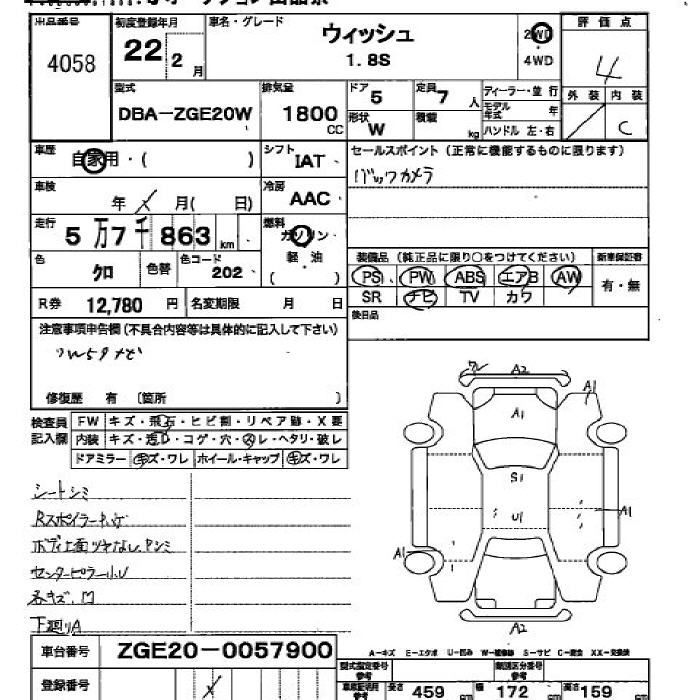 出品番号 初度登録年月 車名・グレード 評価点
4058 22 2月 ウィッシュ 1.8S 2WD 4WD 4
型式 排気量 ドア 定員 ディーラー・並行 外装 内装
DBA-ZGE20W 1800CC 5 7人 モデル年式 年 C
形状 W 積載 kg ハンドル 左・右
車歴 自家用・( ) シフト IAT セールスポイント(正常に機能するものに限ります)
車検 年 月( 日) 冷房 AAC バックカメラ
走行 5万7千863km 燃料 ガソリン 軽・油 ( )
色 クロ 色替 色コード 202
装備品(純正品に限り○をつけてください) 新車保証書
PS PW ABS エアB AW 有・無
SR ナビ TV カワ
R券 12,780円 名変期限 月 日 後日品
注意事項申告欄(不具合内容等は具体的に記入して下さい)
修復歴 有 〔箇所 〕
検査員記入欄 FW キズ・飛石・ヒビ割・リペア跡・X要
内装 キズ・コゲ・穴・スレ・ヘタリ・破レ
ドアミラー キズ・ワレ ホイール・キャップ キズ・ワレ
シートシミ
センターピラー小U
各キズ、凹
下廻りA
A2
A1
A1
S1
U1
A1
A1
A2
車台番号 ZGE20-0057900
A-キズ E-エクボ U-凹み W-補修跡 S-サビ C-腐食 XX-交換済
登録番号
型式指定番号 参考 類別区分番号 参考
車庫証明用 参考 長さ 459cm 幅 172cm 高さ 159cm